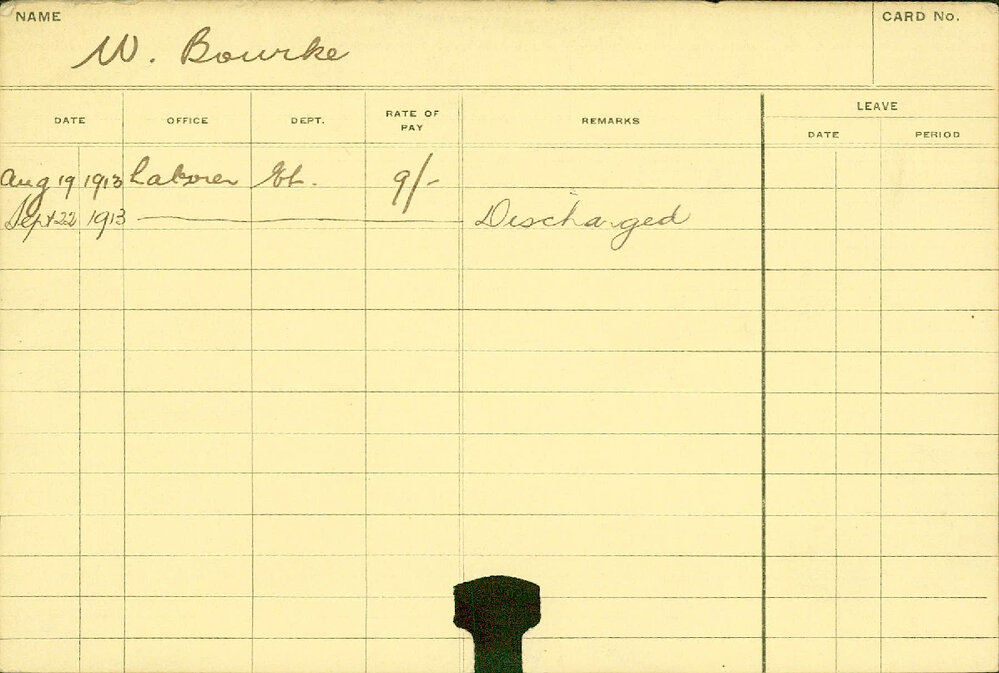 NAME CARD No.
W. Bourke
DATE OFFICE DEPT. RATE OF PAY REMARKS LEAVE
DATE PERIOD
Aug 19 1913 Laborer 9/-
Sept 22 1913 Discharged